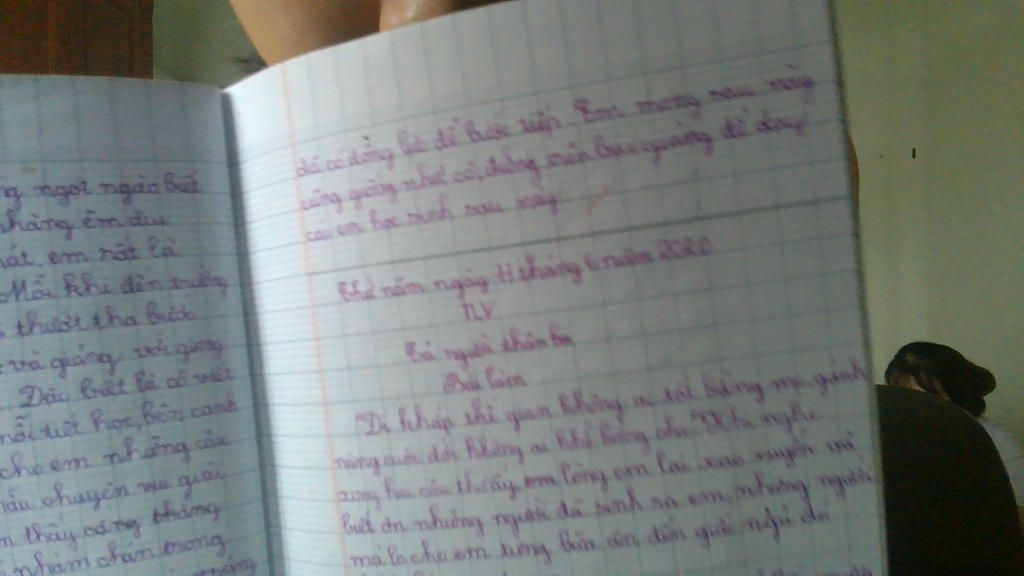 ng ngọt ngào biết
nhàng êm dịu
hát, em rất là
Mỗi khi đến trường
thướt tha bước
và giảng với giọng
Đặc biệt là cô viết
mỗi tiết học, bên cạnh
cho em những câu
mẩu chuyện vui giải
m thấy căng thẳng
nhàm chán trong
đã có động lực để bước tiếp. Em mong sau này
cũng giống như cô, đứng trên bục giảng để dạy
các em học sinh sau này
Thứ năm ngày 11 tháng 6 năm 2020
TLV
Tả người thân
Bài làm
"Đi khắp thế gian không ai tốt bằng mẹ, gánh
nặng cuộc đời không ai khổ bằng cha." Khi nghe
câu thơ ấy, em lòng em lại xao xuyến và
biết ơn những người đã sinh ra em, những người
mà lo cho em từng bữa ăn đến giấc ngủ